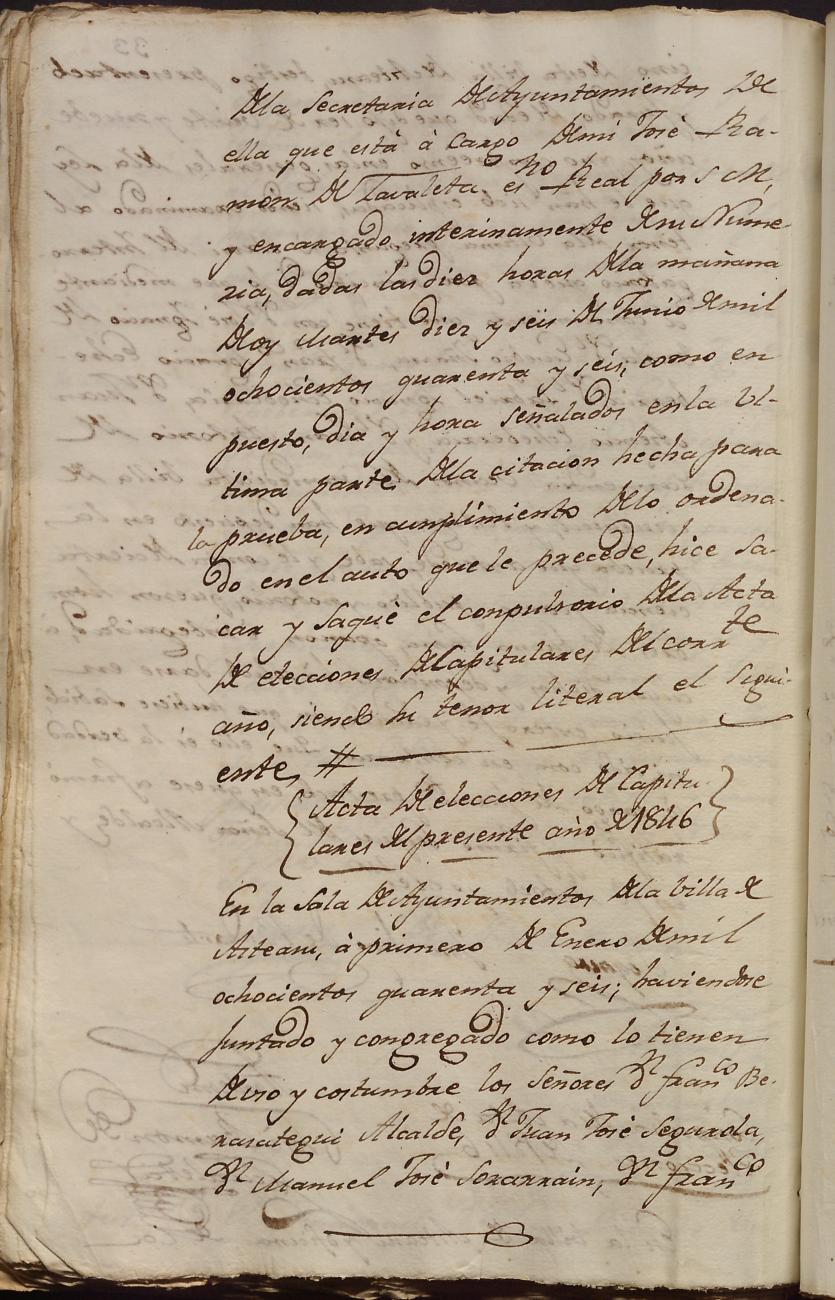 Dela Secretaria de Ayuntamientos de
ella que está à Cargo Demi José Ra-
mon De Zavaleta es.no Real por S. M.,
y encargado interinamente de su Nume-
ria, dadas las diez horas Dela mañana
De oy Martes diez y seis De Junio de mil
ochocientos quarenta y seis, como en
puesto, dia y hora señalados en la Ul-
tima parte Dela citacion hecha para
la prueba, en cumplimiento Delo ordena-
do en el auto que le precede, hice sa-
car y saqué el conpulsorio Dela Acta
De elecciones De Capitulares Del corr.te
año, siendo su tenor literal el sigui-
ente #
Acta De elecciones De Capitu-
lares del presente año de 1846
En la Sala De Ayuntamientos Dela Villa de
Asteasu, à primero De Enero De mil
ochocientos quarenta y seis; haviendose
juntado y congregado como lo tienen
De uso y costumbre los Señores Dn franco Be-
rasategui Alcalde, Dn Juan José Segurola,
Dn Manuel José Sorarrain, Dn franco